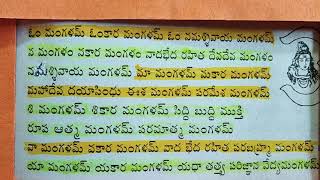 ఓం మంగళమ్ ఓంకార మంగళమ్ ఓం నమశ్శివాయ మంగళమ్
న మంగళం నకార మంగళం నాదభేద రహిత దేవదేవ మంగళం
నమశ్శివాయ మంగళమ్ మా మంగళమ్ మకార మంగళమ్
మహాదేవ దయాసింధు ఈశ మంగళమ్ పరమేశ మంగళమ్
శి మంగళమ్ శికార మంగళమ్ సిద్ధి బుద్ధి ముక్తి
రూప ఆత్మ మంగళమ్ పరమాత్మ మంగళమ్
వా మంగళమ్ వకార మంగళమ్ వాద భేద రహిత పరబ్రహ్మ మంగళమ్
యా మంగళమ్ యకార మంగళమ్ యథా తత్త్వ పరిజ్ఞాన వైద్యమంగళమ్